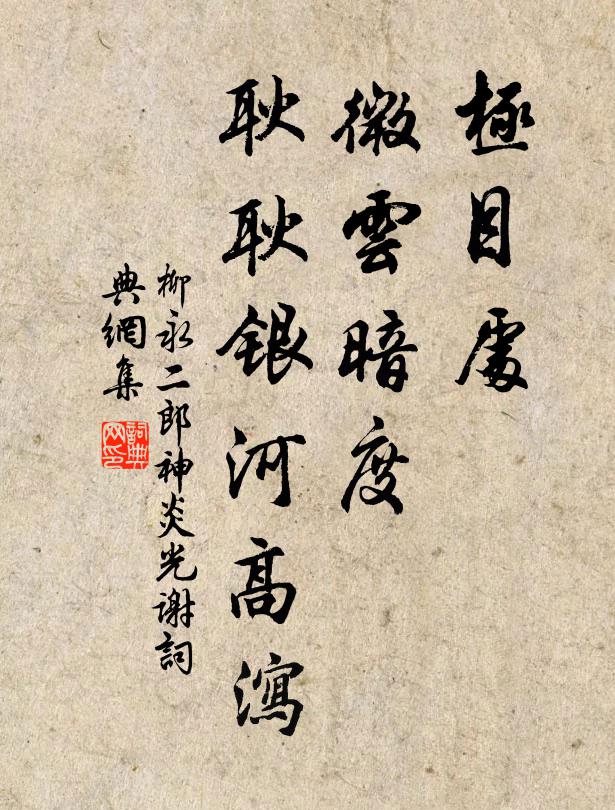 極目處
微雲暗度
耿耿銀河高瀉
柳永二郎神炎光謝詞
典網集
詞典
网印